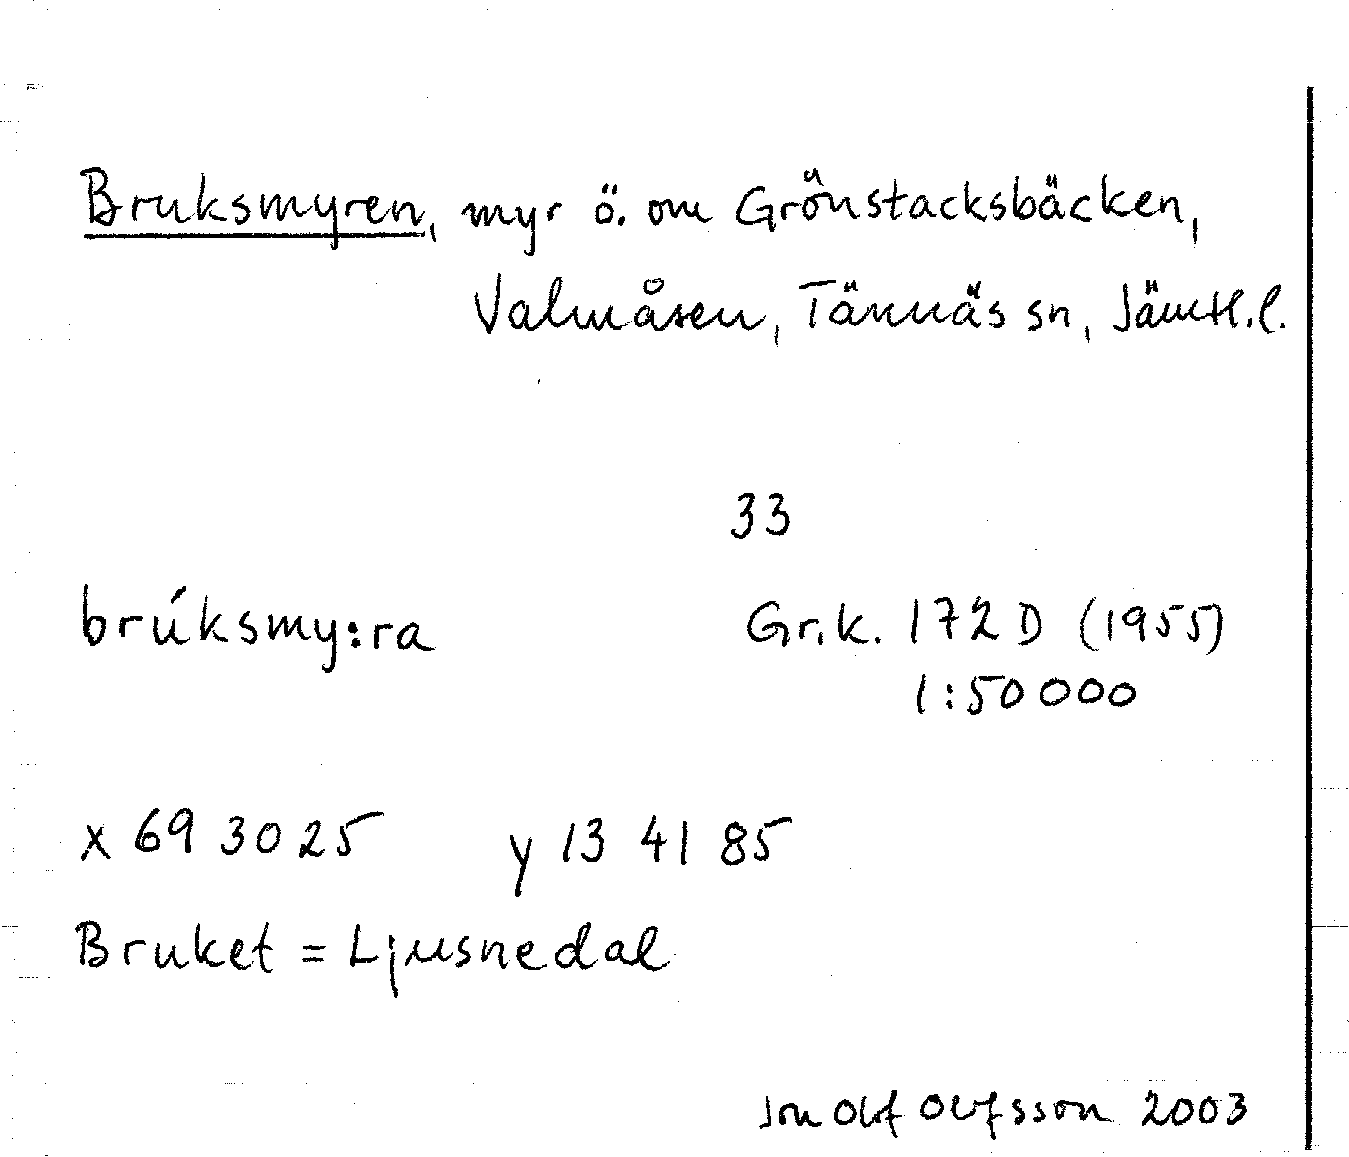 Bruksmyren, myr ö. om Grönstacksbäcken,
Valmåsen, Tännäs sn, Jämtl. l.
33
brúksmy:ra
Gr.k. 172 D (1955)
1:50 000
x 69 30 25 y 13 41 85
Bruket = Ljusnedal
Jon Olof Olofsson 2003